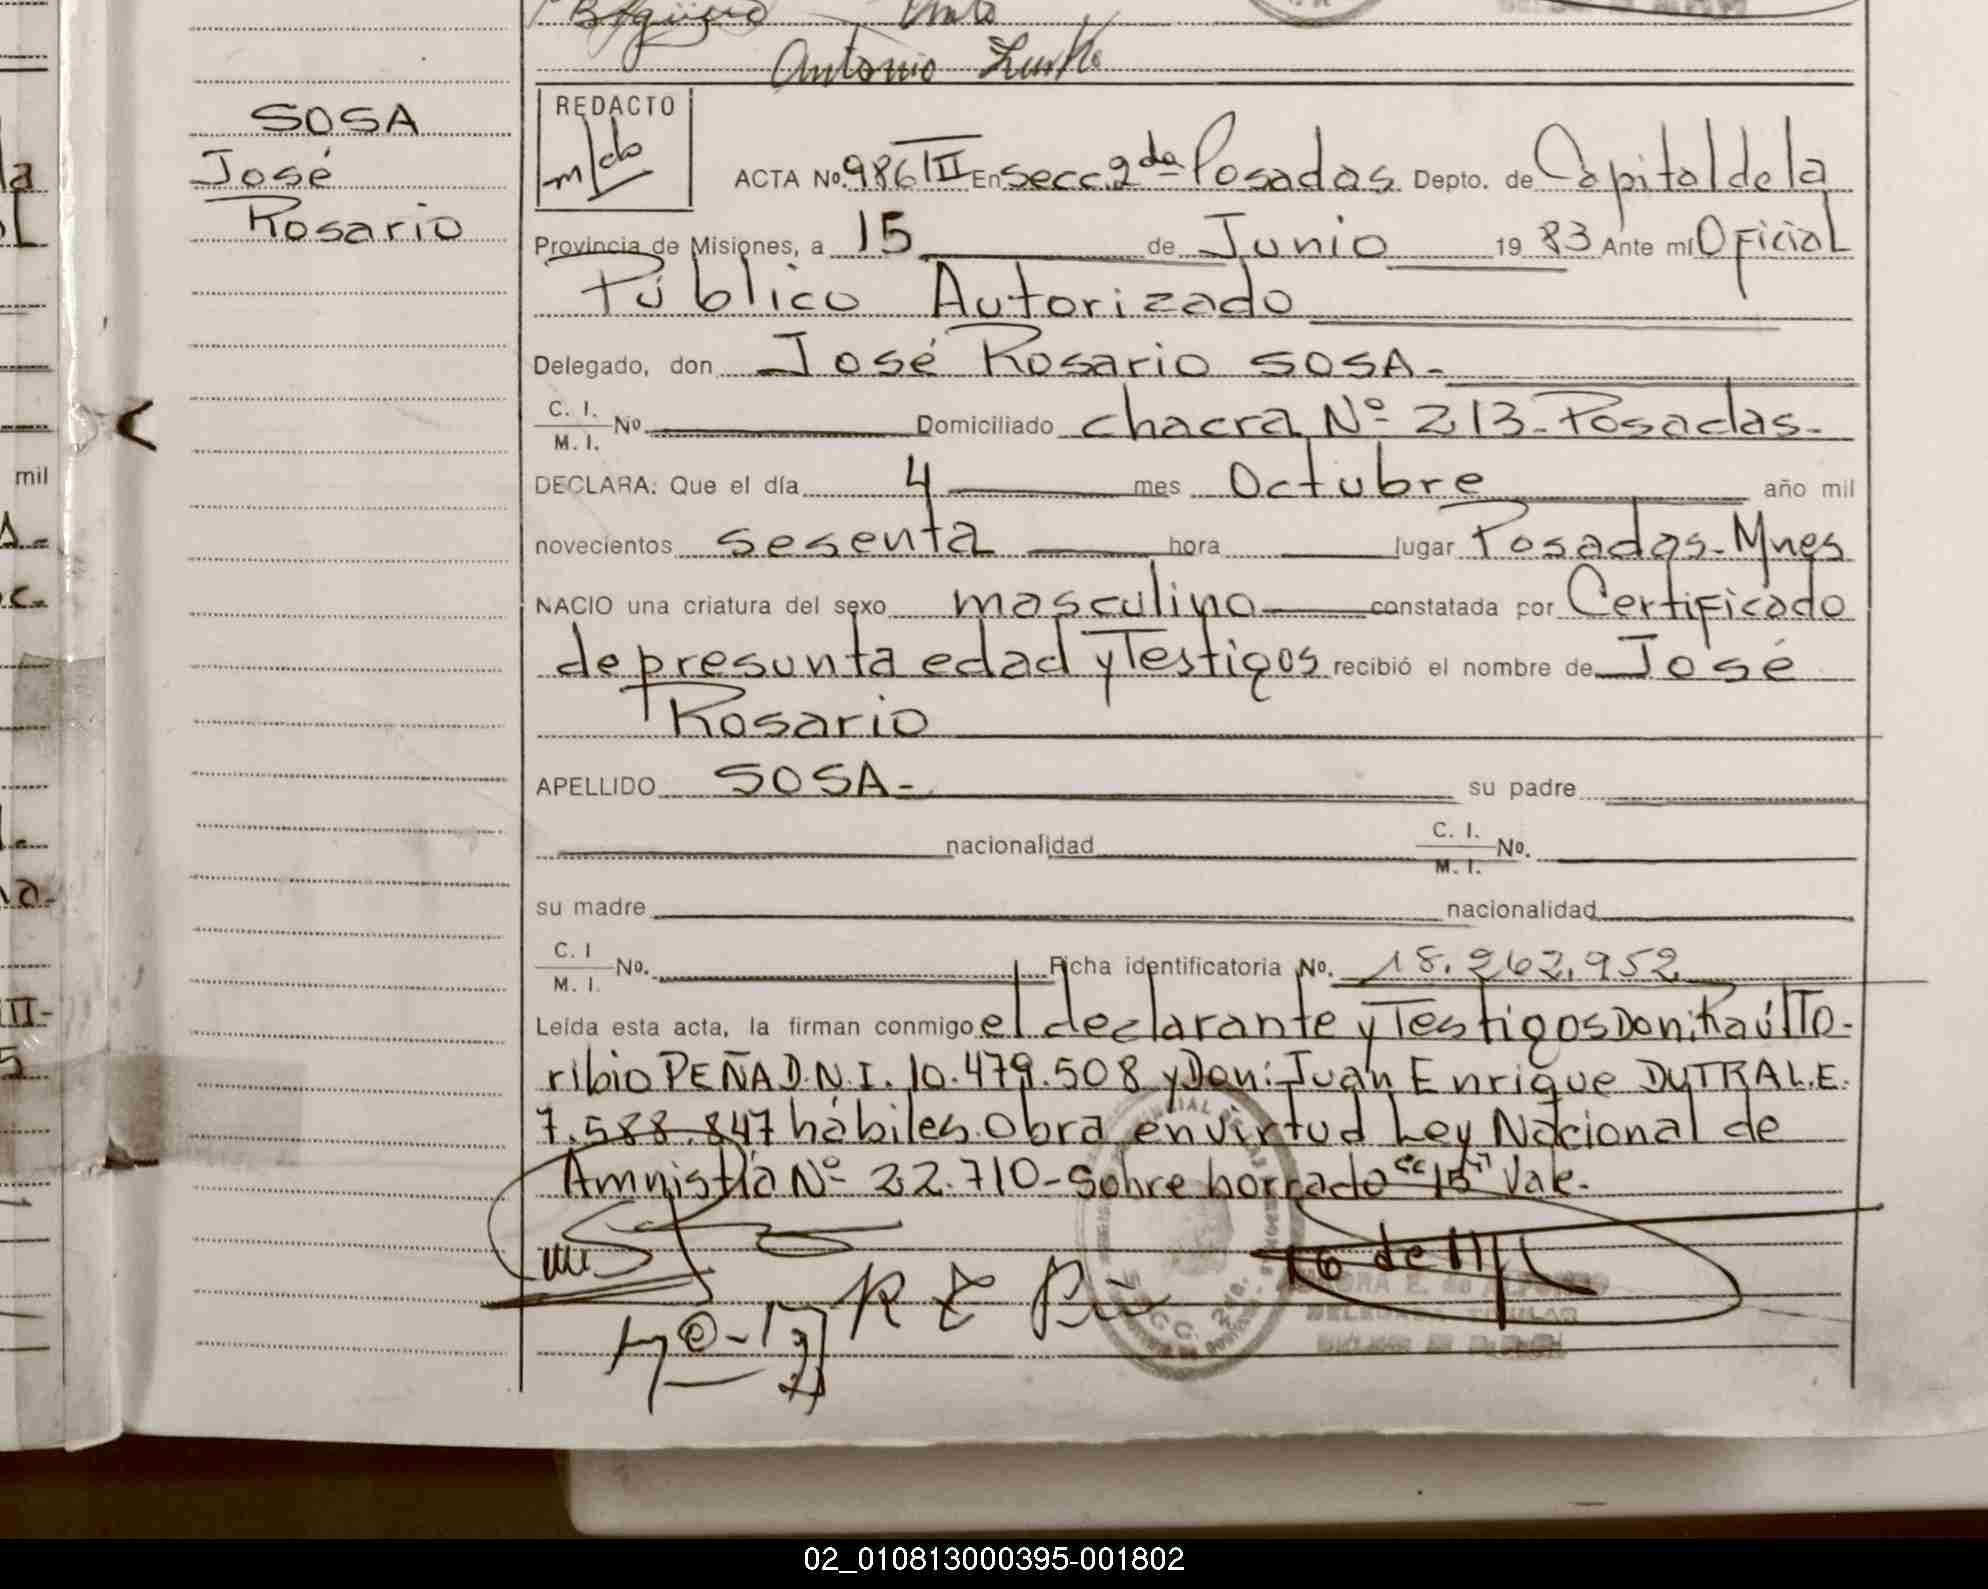 Antonio
SOSA
José
Rosario
REDACTO
ACTA No. 986 III En secc. 2da Posadas Depto. de Capital de la
Provincia de Misiones, a 15 de Junio 1983 Ante mí Oficial
Público Autorizado
Delegado, don José Rosario SOSA-
C. I.
M. I. No. Domiciliado chacra Nº 213-Posadas-
DECLARA: Que el día 4 mes Octubre año mil
novecientos sesenta hora lugar Posadas-Mnes
NACIO una criatura del sexo masculino constatada por Certificado
de presunta edad y Testigos recibió el nombre de José
Rosario
APELLIDO SOSA- su padre
nacionalidad C. I.
M. I. No.
su madre nacionalidad
C. I
M. I. No. Ficha identificatoria No. 18.262.952
Leída esta acta, la firman conmigo el declarante y Testigos Don: Raúl To-
ribio PEÑA D.N.I. 10.479.508 y Don: Juan Enrique DUTRA L.E.
7.588.847 hábiles. Obra en virtud Ley Nacional de
Amnistía Nº 22.710- Sobre borrado "15" Vale.
mil
02_010813000395-001802